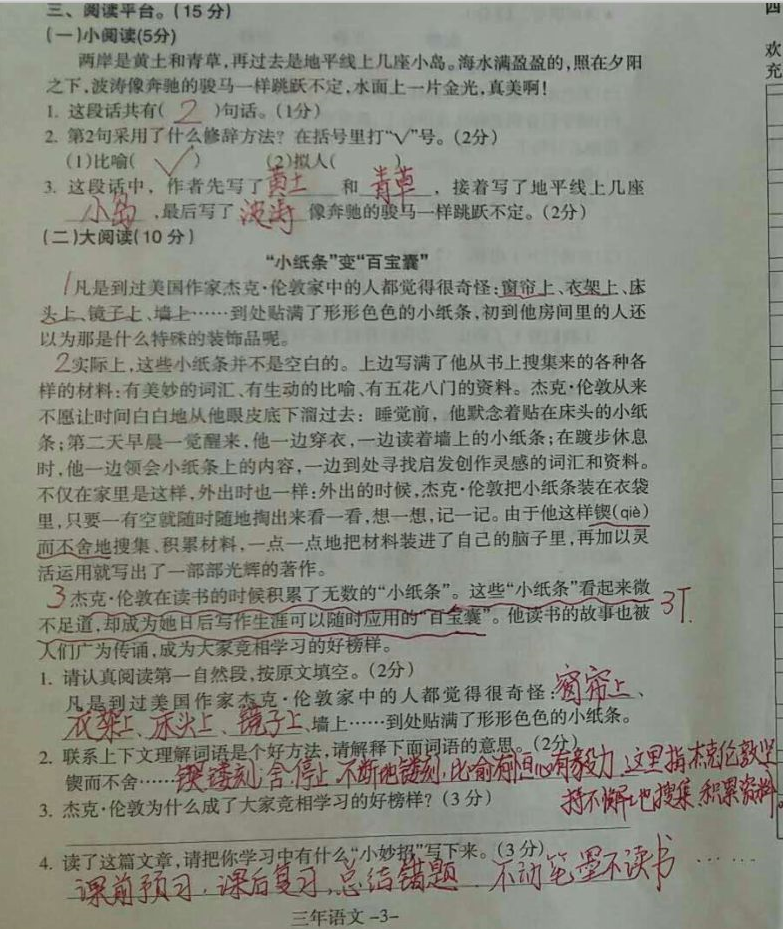 三、阅读平台。(15分)
(一)小阅读(5分)
两岸是黄土和青草,再过去是地平线上几座小岛。海水满盈盈的,照在夕阳
之下,波涛像奔驰的骏马一样跳跃不定,水面上一片金光,真美啊!
1. 这段话共有( 2 )句话。(1分)
2. 第2句采用了什么修辞方法? 在括号里打“√”号。(2分)
(1)比喻( √ ) (2)拟人( )
3. 这段话中, 作者先写了黄土 和 青草 , 接着写了地平线上几座
小岛 ,最后写了 波涛 像奔驰的骏马一样跳跃不定。(2分)
(二)大阅读(10分)
“小纸条”变“百宝囊”
1凡是到过美国作家杰克·伦敦家中的人都觉得很奇怪:窗帘上、衣架上、床
头上、镜子上、墙上……到处贴满了形形色色的小纸条,初到他房间里的人还
以为那是什么特殊的装饰品呢。
2实际上,这些小纸条并不是空白的。上边写满了他从书上搜集来的各种各
样的材料:有美妙的词汇、有生动的比喻、有五花八门的资料。杰克·伦敦从来
不愿让时间白白地从他眼皮底下溜过去: 睡觉前, 他默念着贴在床头的小纸
条;第二天早晨一觉醒来,他一边穿衣,一边读着墙上的小纸条;在踱步休息
时,他一边领会小纸条上的内容,一边到处寻找启发创作灵感的词汇和资料。
不仅在家里是这样,外出时也一样:外出的时候,杰克·伦敦把小纸条装在衣袋
里,只要一有空就随时随地掏出来看一看,想一想,记一记。由于他这样锲(qiè)
而不舍地搜集、积累材料,一点一点地把材料装进了自己的脑子里,再加以灵
活运用就写出了一部部光辉的著作。
3杰克·伦敦在读书的时候积累了无数的“小纸条”。这些“小纸条”看起来微
不足道,却成为她日后写作生涯可以随时应用的“百宝囊”。他读书的故事也被
3T.
人们广为传诵,成为大家竞相学习的好榜样。
1. 请认真阅读第一自然段,按原文填空。(2分)
凡是到过美国作家杰克·伦敦家中的人都觉得很奇怪:窗帘上、
衣架上、床头上、镜子上、墙上……到处贴满了形形色色的小纸条。
2. 联系上下文理解词语是个好方法,请解释下面词语的意思。(2分)
锲而不舍……锲:镂刻,舍:停止,不断地镂刻,比喻有恒心有毅力,这里指杰克伦敦坚
持不懈地搜集积累资料。
3. 杰克·伦敦为什么成了大家竞相学习的好榜样? (3分)
4. 读了这篇文章,请把你学习中有什么“小妙招”写下来。(3分)
课前预习,课后复习,总结错题,不动笔墨不读书……
三年语文 -3-
四
欢
充